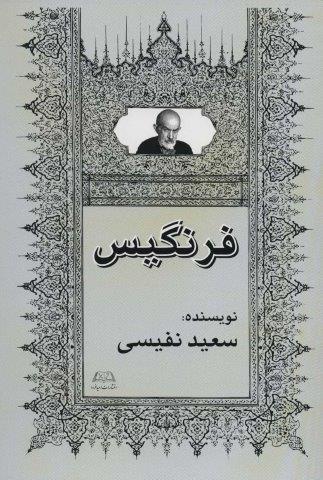 فرنگیس
نویسنده:
سعید نفیسی